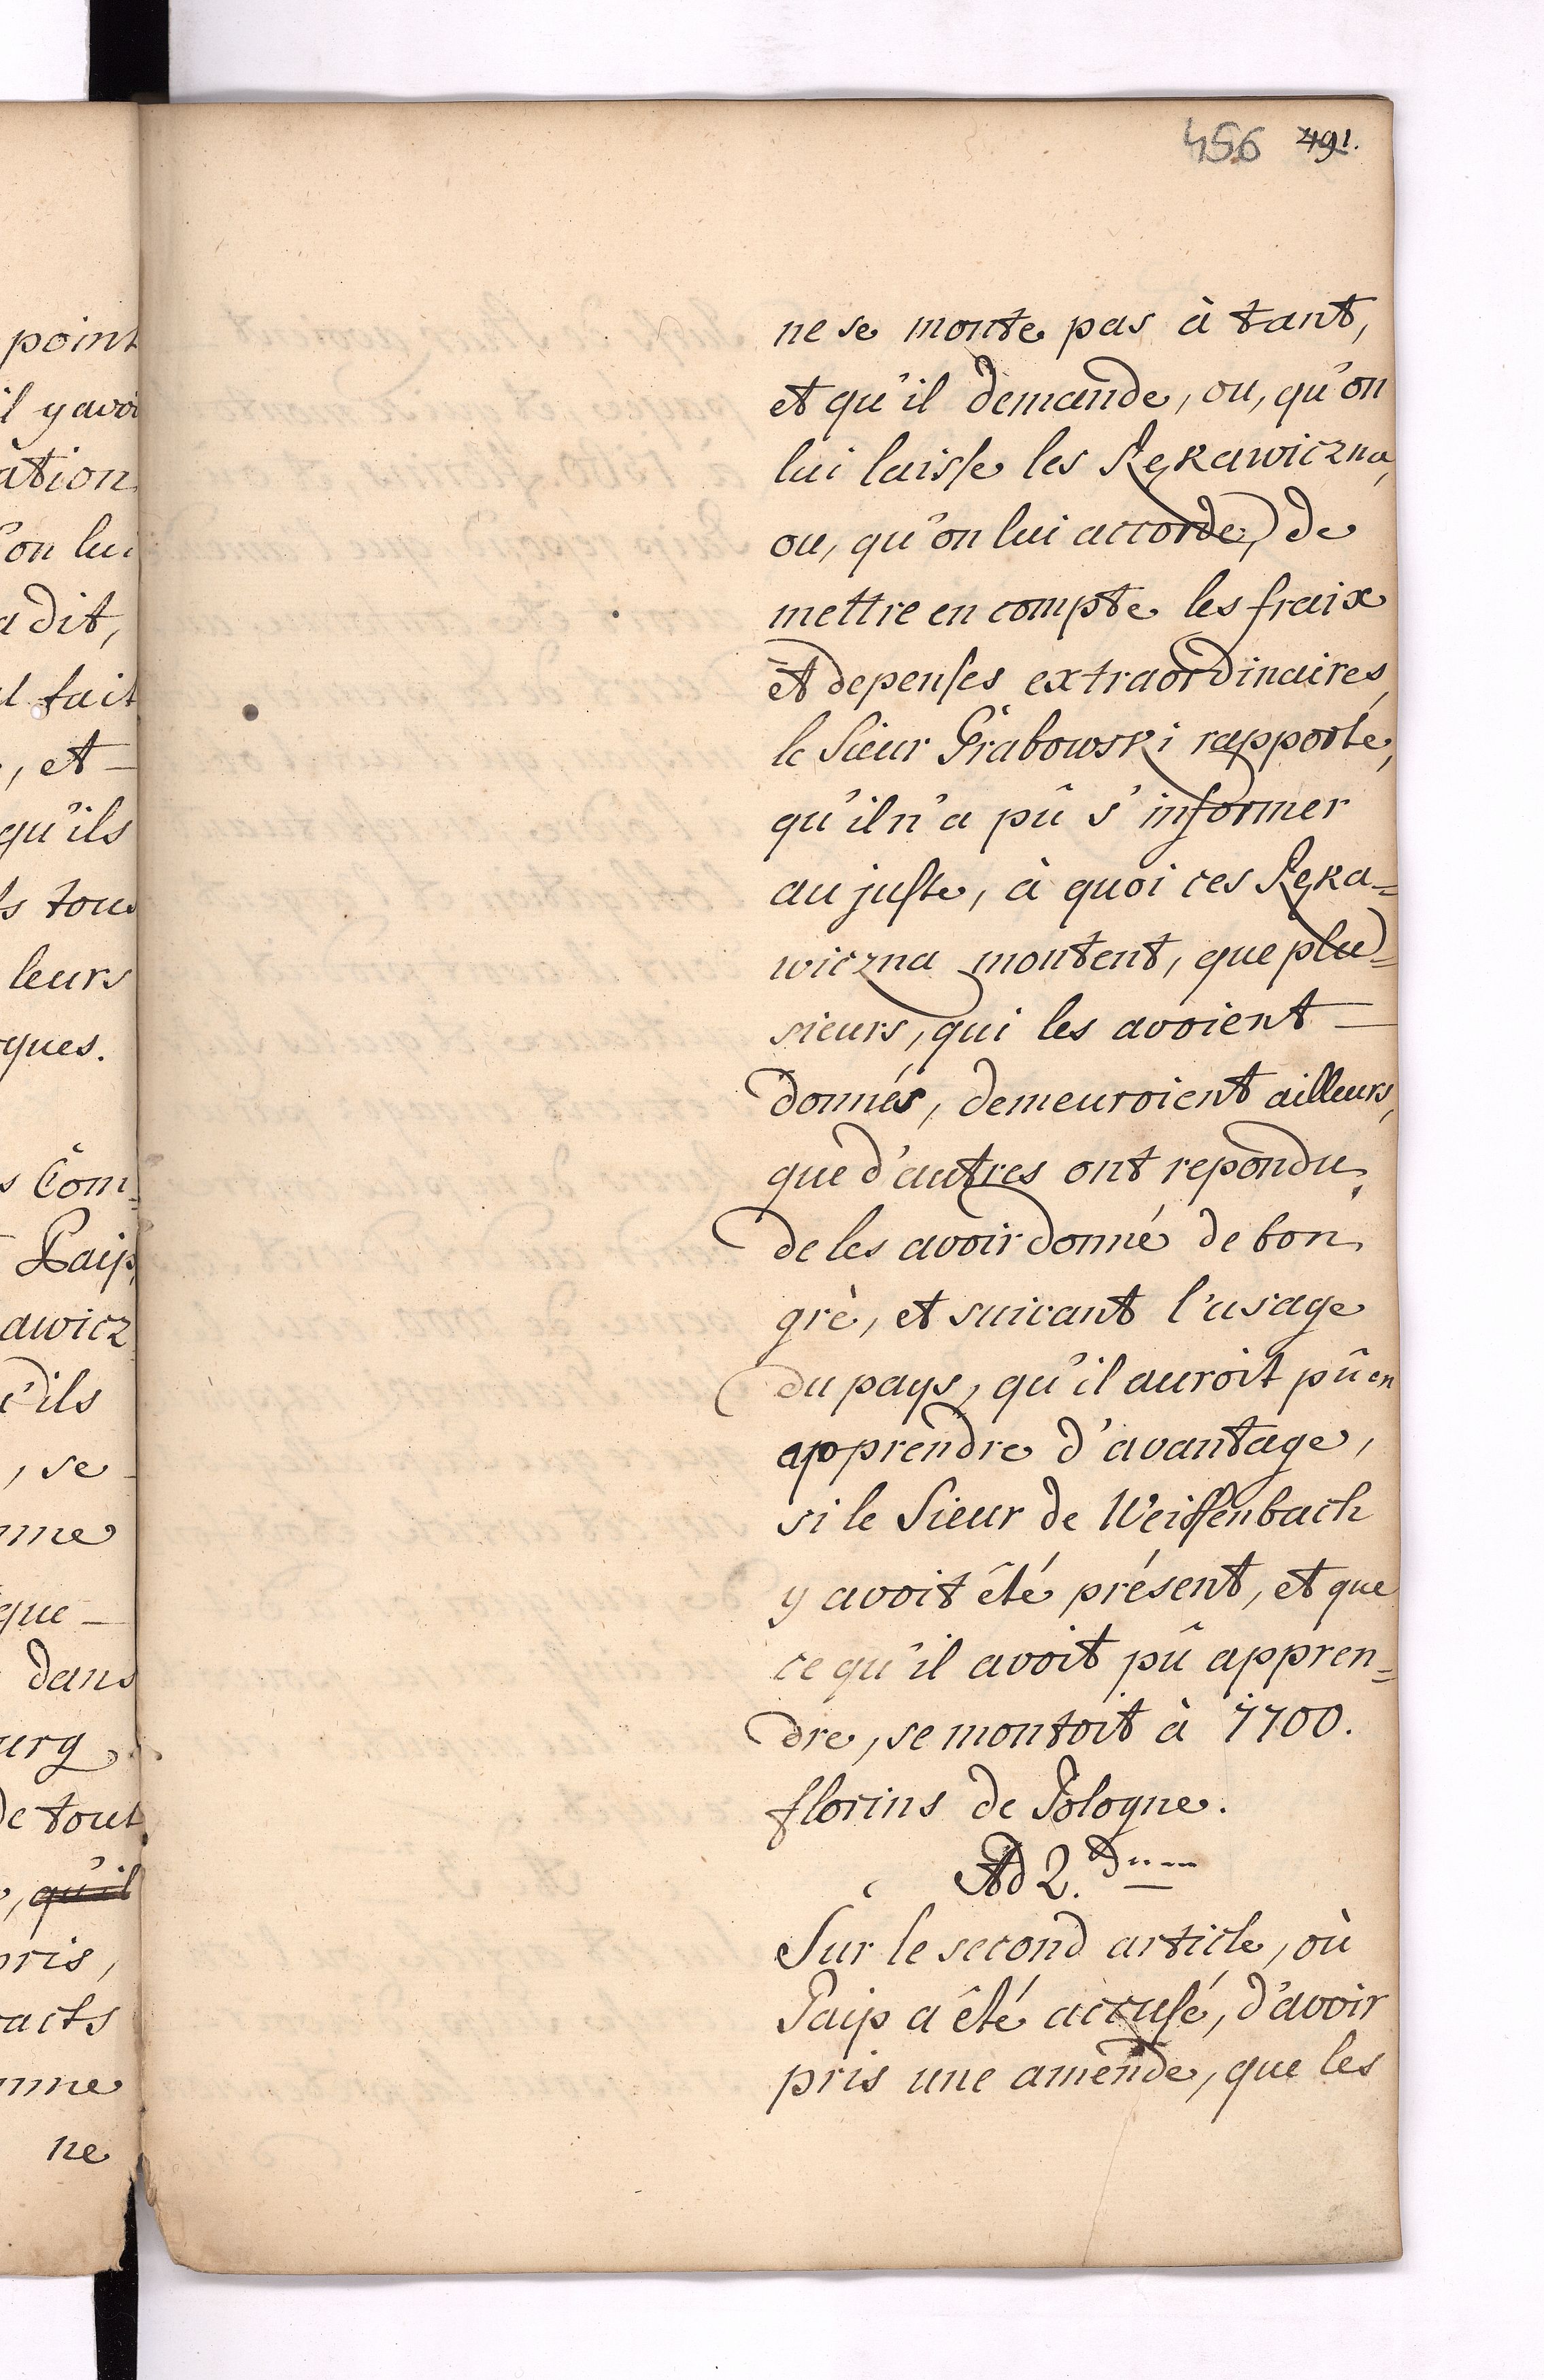 456 491.
ne se monte pas à tant,
et qu'il demande, ou, qu'on
lui laisse les Rękawiczna,
ou, qu'on lui accorde, de
mettre en compte les fraix
et depenses extraordinaires,
le Sieur Grabowski rapporte,
qu'il n'a pû s'informer
au juste, à quoi ces Ręka=
wiczna montent, que plu=
sieurs, qui les avoient —
donnés, demeuroient ailleurs,
que d'autres ont repondu,
de les avoir donné de bon
grè, et suivant l'usage
du pays, qu'il auroit pû en
apprendre d'avantage,
si le Sieur de Weissenbach
y avoit êté présent, et que
ce qu'il avoit pû appren=
dre, se montoit à 1700.
florins de Pologne.
Ad 2.dum
Sur le second article, où
Paip a êté accusé, d'avoir
pris une amende, que les
point
il y avoi
ation
'on lui
a dit,
fait
, et —
qu'ils
s tous
leurs
ques.
s Com=
Paip
awicz
'ils
, se
que —
dans
urg
de tout
, qu'il
pris,
acts
ne